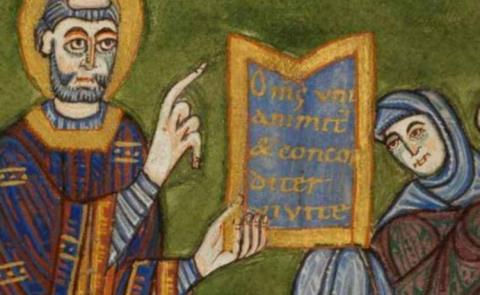 Om̄s uni
animit̄
& concor
diter
vivite